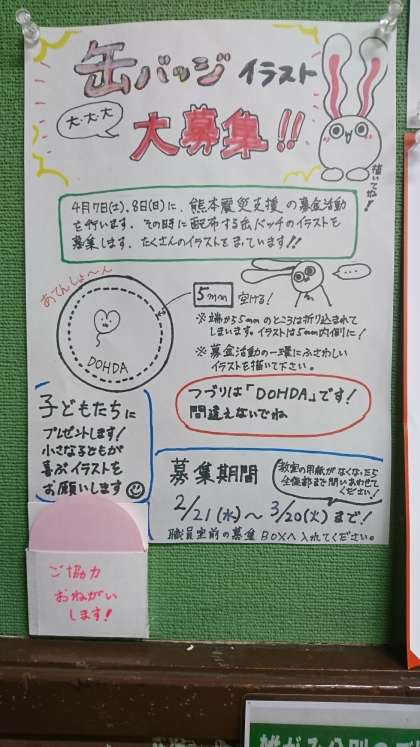 缶バッジ イラスト
大・大・大
大募集!!
描いてね!
4月7日(土)、8日(日)に、熊本震災支援の募金活動
を行います。その時に配布する缶バッチのイラストを
募集します。たくさんのイラストをまっています!!
おてんしょ〜ん
5mm 空ける!
...
DOHDA
※端から5mmのところは折り込まれて
しまいます。イラストは5mm内側に!
※募金活動の一環にふさわしい
イラストを描いて下さい。
つづりは「DOHDA」です!
間違えないでね
子どもたちに
プレゼントします!
小さな子どもが
喜ぶイラストを
お願いします
募集期間
教室の用紙がなくなったら
まで問いあわせて
ください!
2/21(水)〜3/20(火)まで!
職員室前の募金BOXへ入れてください。
ご協力
おねがい
します!